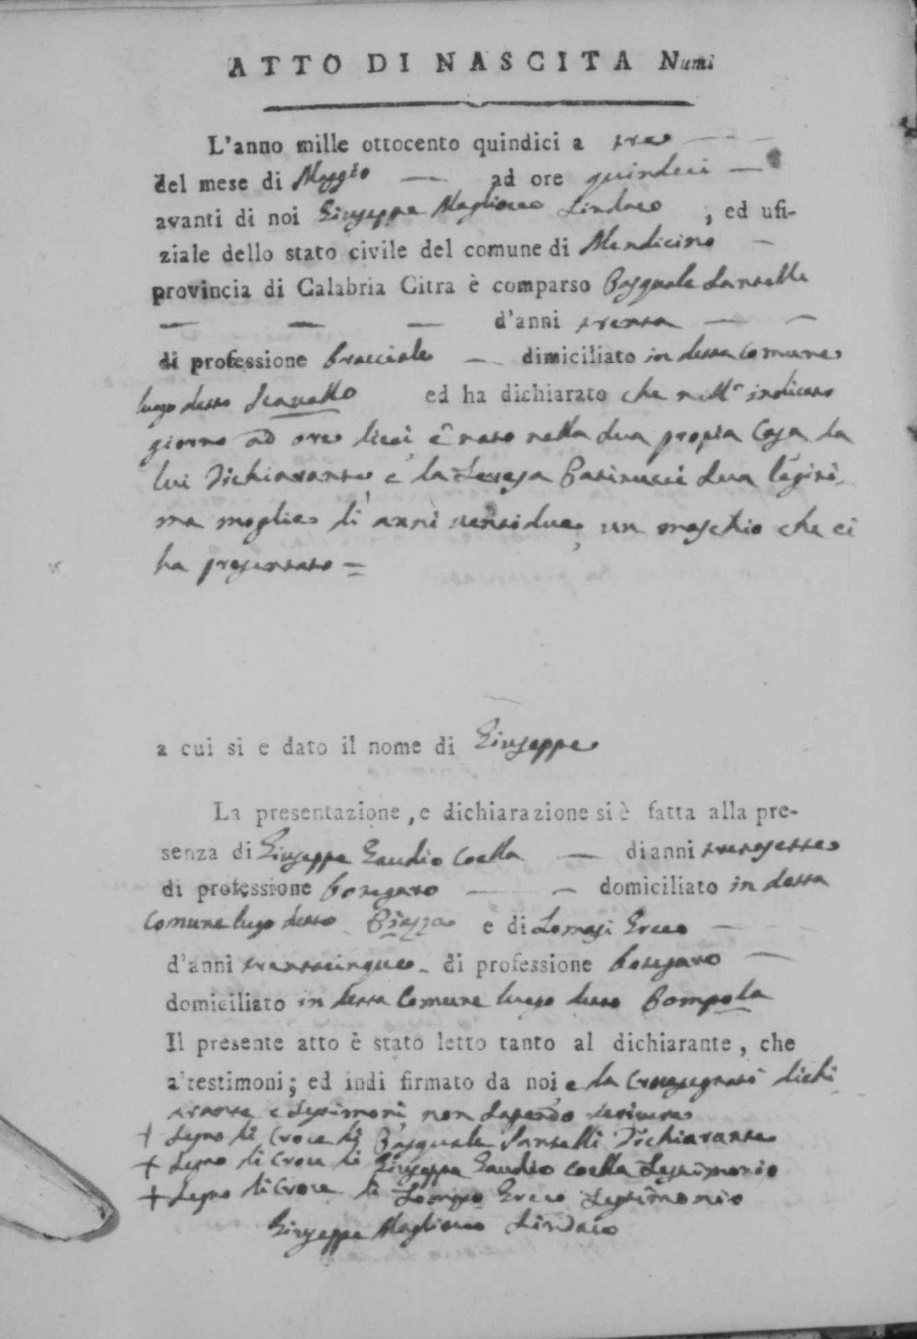 ATTO DI NASCITA Numi
L'anno mille ottocento quindici a tre
del mese di Maggio ad ore quindici
avanti di noi Giuseppe Magliocco Sindaco, ed ufi-
ziale dello stato civile del comune di Mendicino
provincia di Calabria Citra è comparso Pasquale Santelli
d'anni trenta
di professione bracciale dimiciliato in detta comune
luogo detto ed ha dichiarato che nell'indicato
giorno ad ore dieci è nato nella sua propia Casa da
lui Dichiarante e la Teresa sua legiti-
ma moglie di anni ventidue, un maschio che ci
ha presentato =
a cui si e dato il nome di Giuseppe
La presentazione, e dichiarazione si è fatta alla pre-
senza di Giuseppe Gaudio Coella di anni trentasette
di professione botegaro domiciliato in detta
Comune luogo detto Piazza e di Tomasi Greco
d'anni trentacinque di professione botegaro
domiciliato in detta Comune luogo detto
Il presente atto è stato letto tanto al dichiarante, che
a'testimoni; ed indi firmato da noi e da Crocesegnati dichi
arante e Testimoni non sapendo scrivere
+ Segno di Croce di Pasquale Santelli Dichiarante
+ Segno di Croce di Giuseppe Gaudio Coella Testimonio
+ Segno di Croce di Greco Testimonio
Giuseppe Magliocco Sindaco